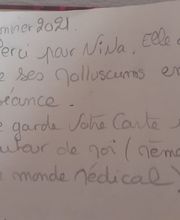 2021.
par NiNa. Elle
ses molluscums en
séance.
garde Votre Carte
autour de moi (même
monde médical)